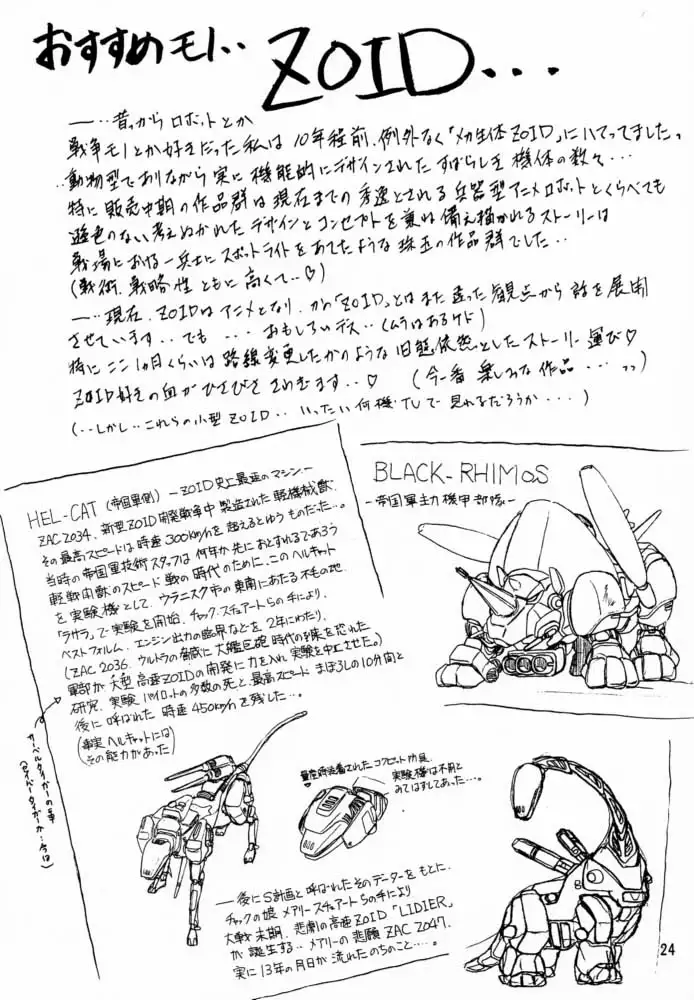 おすすめモノ‥
ZOID...
―‥昔っから ロボットとか
戦争モノとか好きだった私は 10年程前、例外なく「メカ生体ZOID」にハマってました
動物型でありながら実に 機能的にデザインされた すばらしき 機体の数々…
特に 販売中期の作品群は 現在までの 秀逸とされる 兵器型アニメロボットとくらべても
遜色のない 考えぬかれた デザインと コンセプトを 兼ね備え描かれるストーリーは
戦場における 一兵士に スポットライトを あてたような 珠玉の作品群でした‥
(戦術、戦略性 ともに 高くて‥♡)
―‥現在、ZOIDは アニメとなり、かの「ZOID」とは また 違った 観点から 話を 展開
させています‥ でも … おもしろいデス‥(ムラはあるケド)
特に ここ1ヵ月くらいは 路線変更したかのような 旧態依然としたストーリー 運び♡
ZOID好きの血が ひさびさ さわぎます‥♡ (今一番 楽しみな 作品 …)
(‥しかし‥これらの小型 ZOID‥ いったい 何機 TVで 見れるだろうか…)
HEL-CAT (帝国軍側) ―ZOID史上最速のマシン―
ZAC2034、新型ZOID開発戦争中 製造された 軽機械獣。
その最高スピードは時速300km/hを 超えるとゆう ものだった…。
当時の帝国軍技術スタッフは 何年か 先に おとずれるであろう
軽戦闘獣のスピード戦の時代のために、この ヘルキャット
を 実験機 として、ウラニスク市の 東南にあたる 不毛の地、
「ラサラ」で 実験を 開始、チャック、スチュアートらの手により、
ベストフォルム、エンジン出力の臨界などを 2年にわたり、
(ZAC 2036、ウルトラの脅威に 大艦巨砲 時代の到来を 恐れた
軍部が 大型 高速ZOIDの開発に 力を入れ 実験を中止させた。)
研究、実験パイロットの多数の死と、最高スピード まぼろしの10分間と
後に 呼ばれた 時速 450km/hを 残した…。
(事実 ヘルキャットには
その能力があった)
サーベルタイガーの事
(セイバータイガーか‥今は)
BLACK-RHIMOS
―帝国軍主力機甲部隊―
量産時装着された コクピット防具、
実験機は 不用と
みてはずしてあった…。
―後にS計画と 呼ばれた そのデーターを もとに、
チャックの娘 メアリー スチュアートらの手により
大戦 末期、悲劇の高速ZOID「LIDIER」
が 誕生する‥ メアリーの 悲願 ZAC 2047、
実に 13年の月日が 流れたのちのこと…。
24